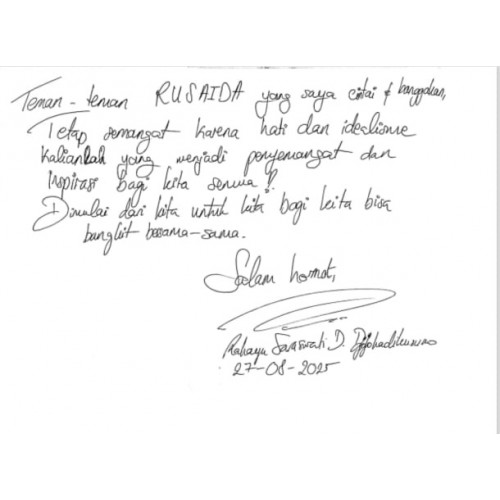 Teman-teman RUSAIDA yang saya cintai & banggakan,
Tetap semangat karena hati dan ideslisme
kalianlah yang menjadi penyemangat dan
inspirasi bagi kita semua!
Dimulai dari kita untuk kita bagi kita bisa
bangkit bersama-sama.
Salam hormat,
Rahayu Saraswati D. Djojohadikusumo
27-08-2025